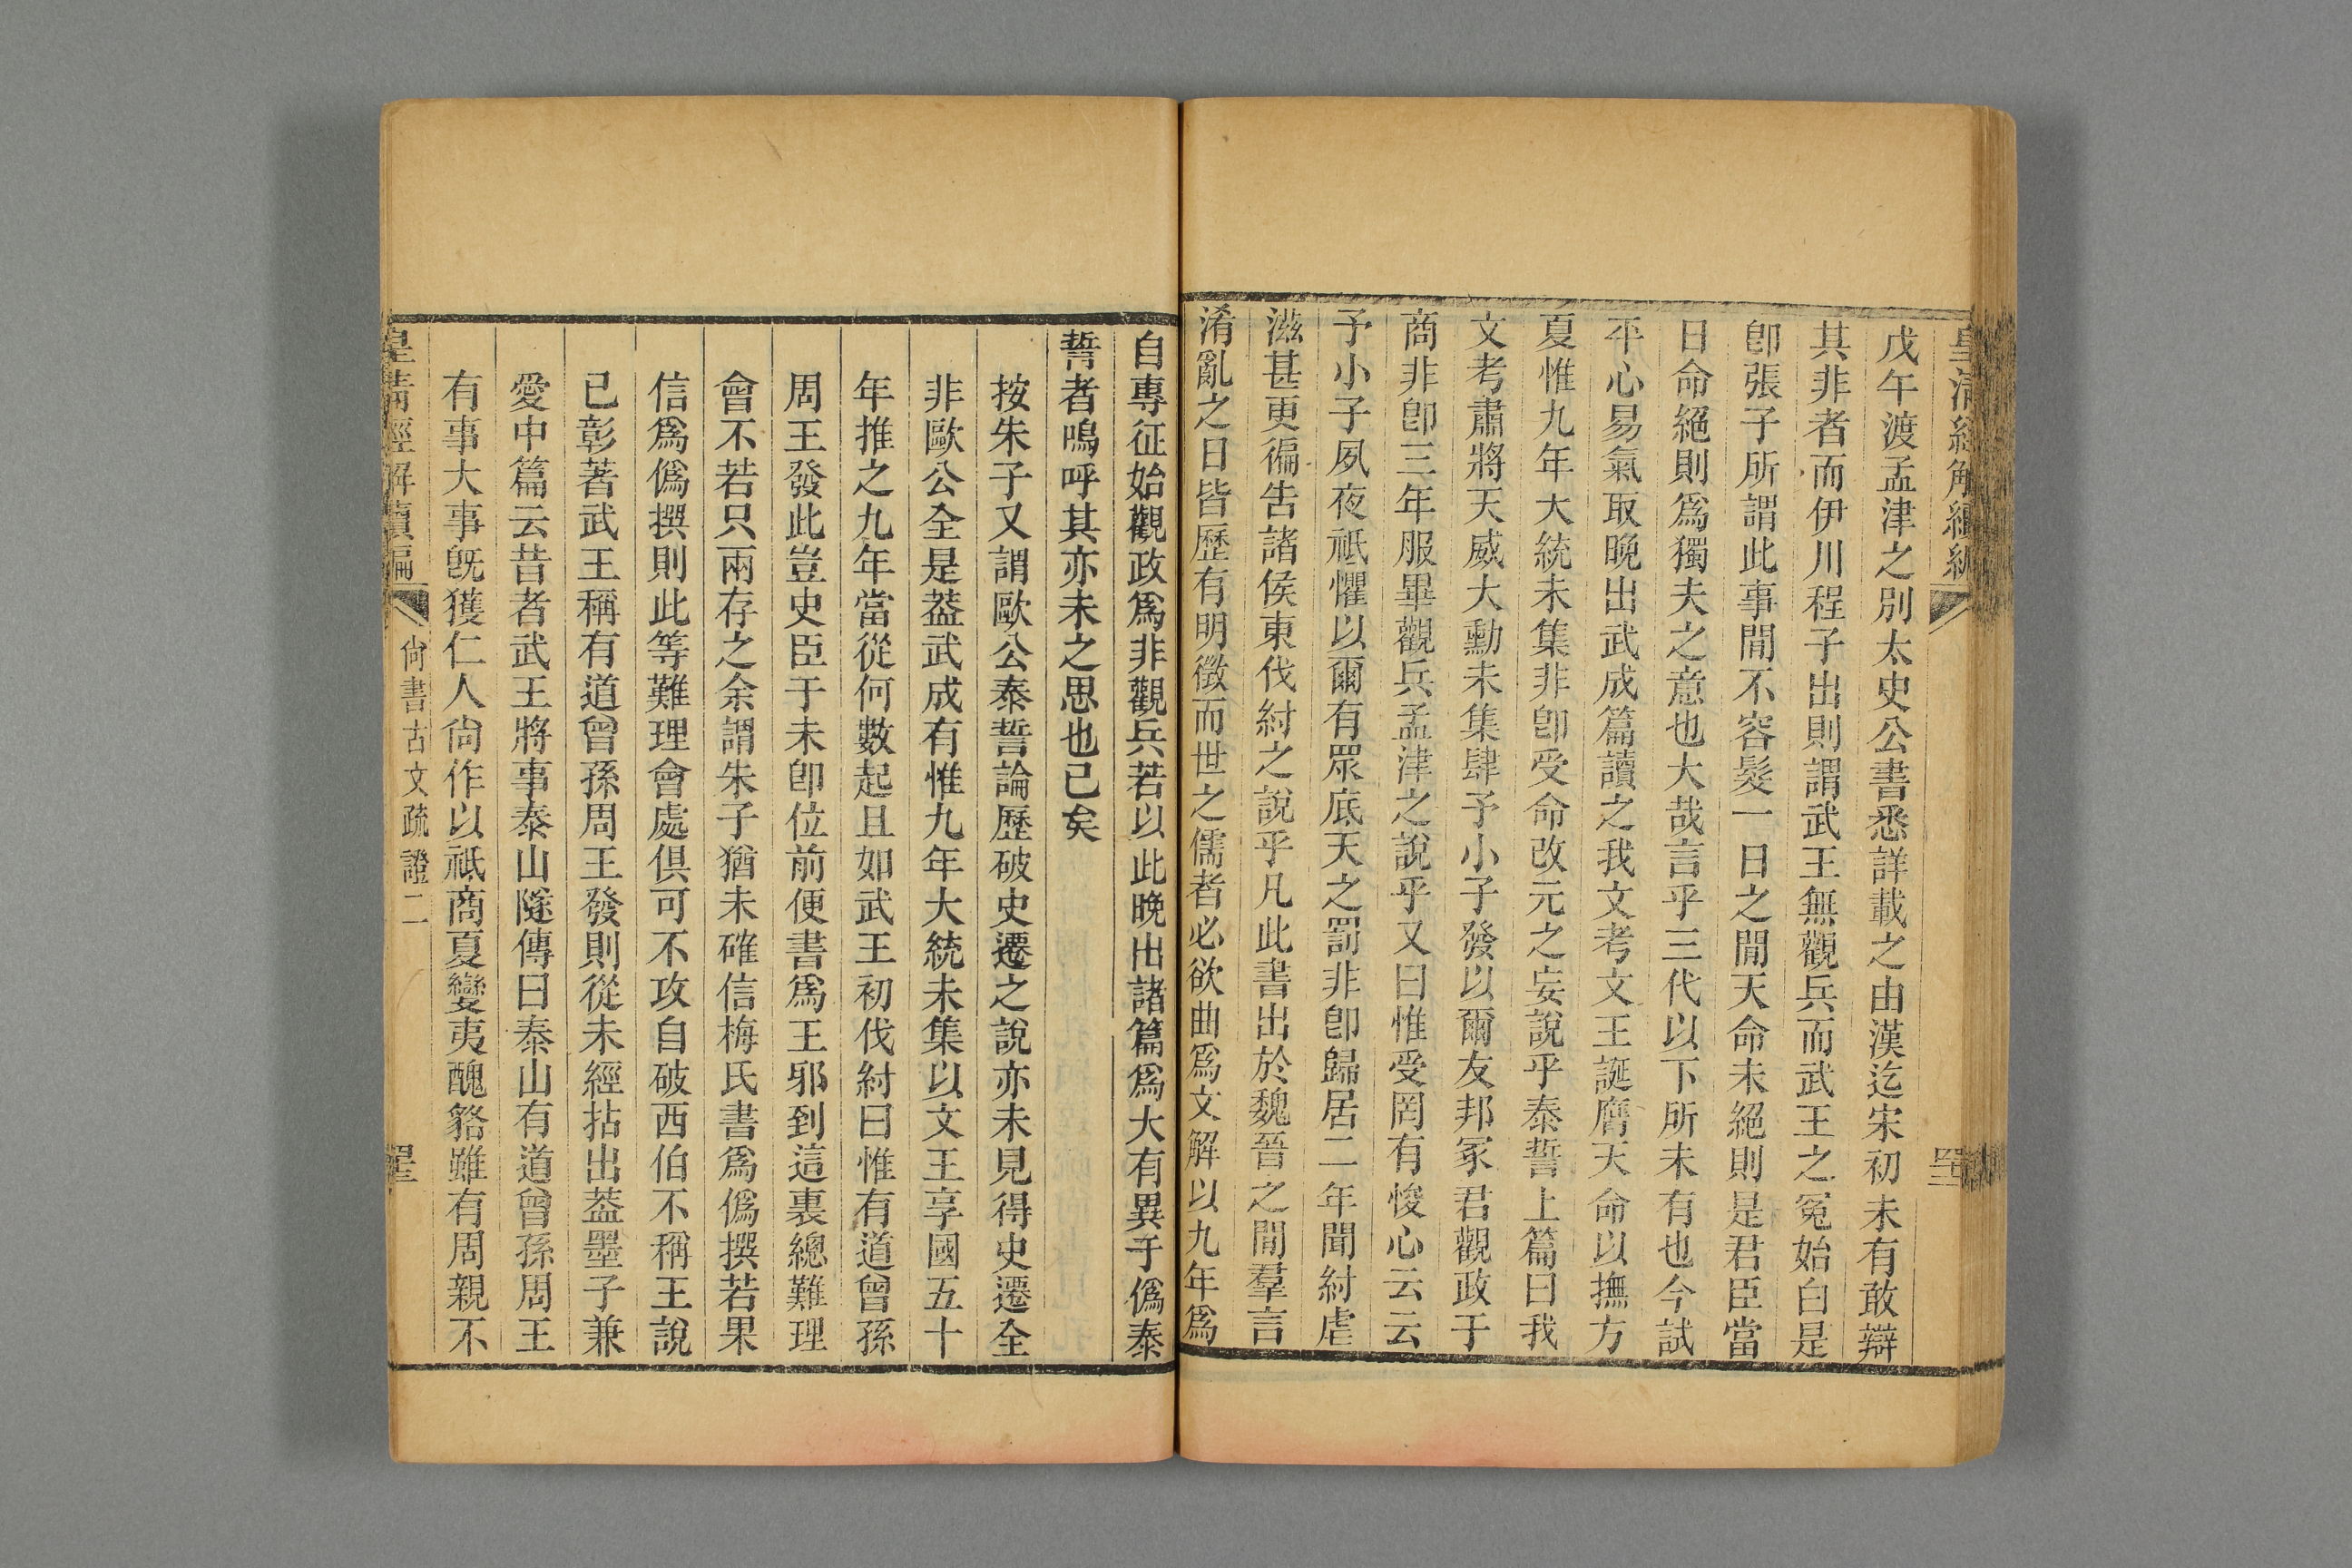 皇清經解續編
戊午渡孟津之別太史公書悉詳載之由漢迄宋初未有敢辯
其非者而伊川程子出則謂武王無觀兵而武王之冤始白是
卽張子所謂此事閒不容髮一日之閒天命未絕則是君臣當
日命絕則爲獨夫之意也大哉言乎三代以下所未有也今試
平心易氣取晚出武成篇讀之我文考文王誕膺天命以撫方
夏惟九年大統未集非卽受命改元之妄說乎泰誓上篇曰我
文考肅將天威大勳未集肆予小子發以爾友邦冢君觀政于
商非卽三年服畢觀兵孟津之說乎又曰惟受罔有悛心云云
予小子夙夜祗懼以爾有眾底天之罰非卽歸居二年聞紂虐
滋甚更徧告諸侯東伐紂之說乎凡此書出於魏晉之閒羣言
淆亂之日皆歷有明徵而世之儒者必欲曲爲文解以九年爲
自專征始觀政爲非觀兵若以此晚出諸篇爲大有異于僞泰
誓者嗚呼其亦未之思也已矣
按朱子又謂歐公泰誓論歷破史遷之說亦未見得史遷全
非歐公全是葢武成有惟九年大統未集以文王享國五十
年推之九年當從何數起且如武王初伐紂曰惟有道曾孫
周王發此豈史臣于未卽位前便書爲王邪到這裏總難理
會不若只兩存之余謂朱子猶未確信梅氏書爲僞撰若果
信爲僞撰則此等難理會處俱可不攻自破西伯不稱王說
已彰著武王稱有道曾孫周王發則從未經拈出葢墨子兼
愛中篇云昔者武王將事泰山隧傳曰泰山有道曾孫周王
有事大事旣獲仁人尙作以祗商夏蠻夷醜貉雖有周親不
皇清經解續編
尙書古文疏證二